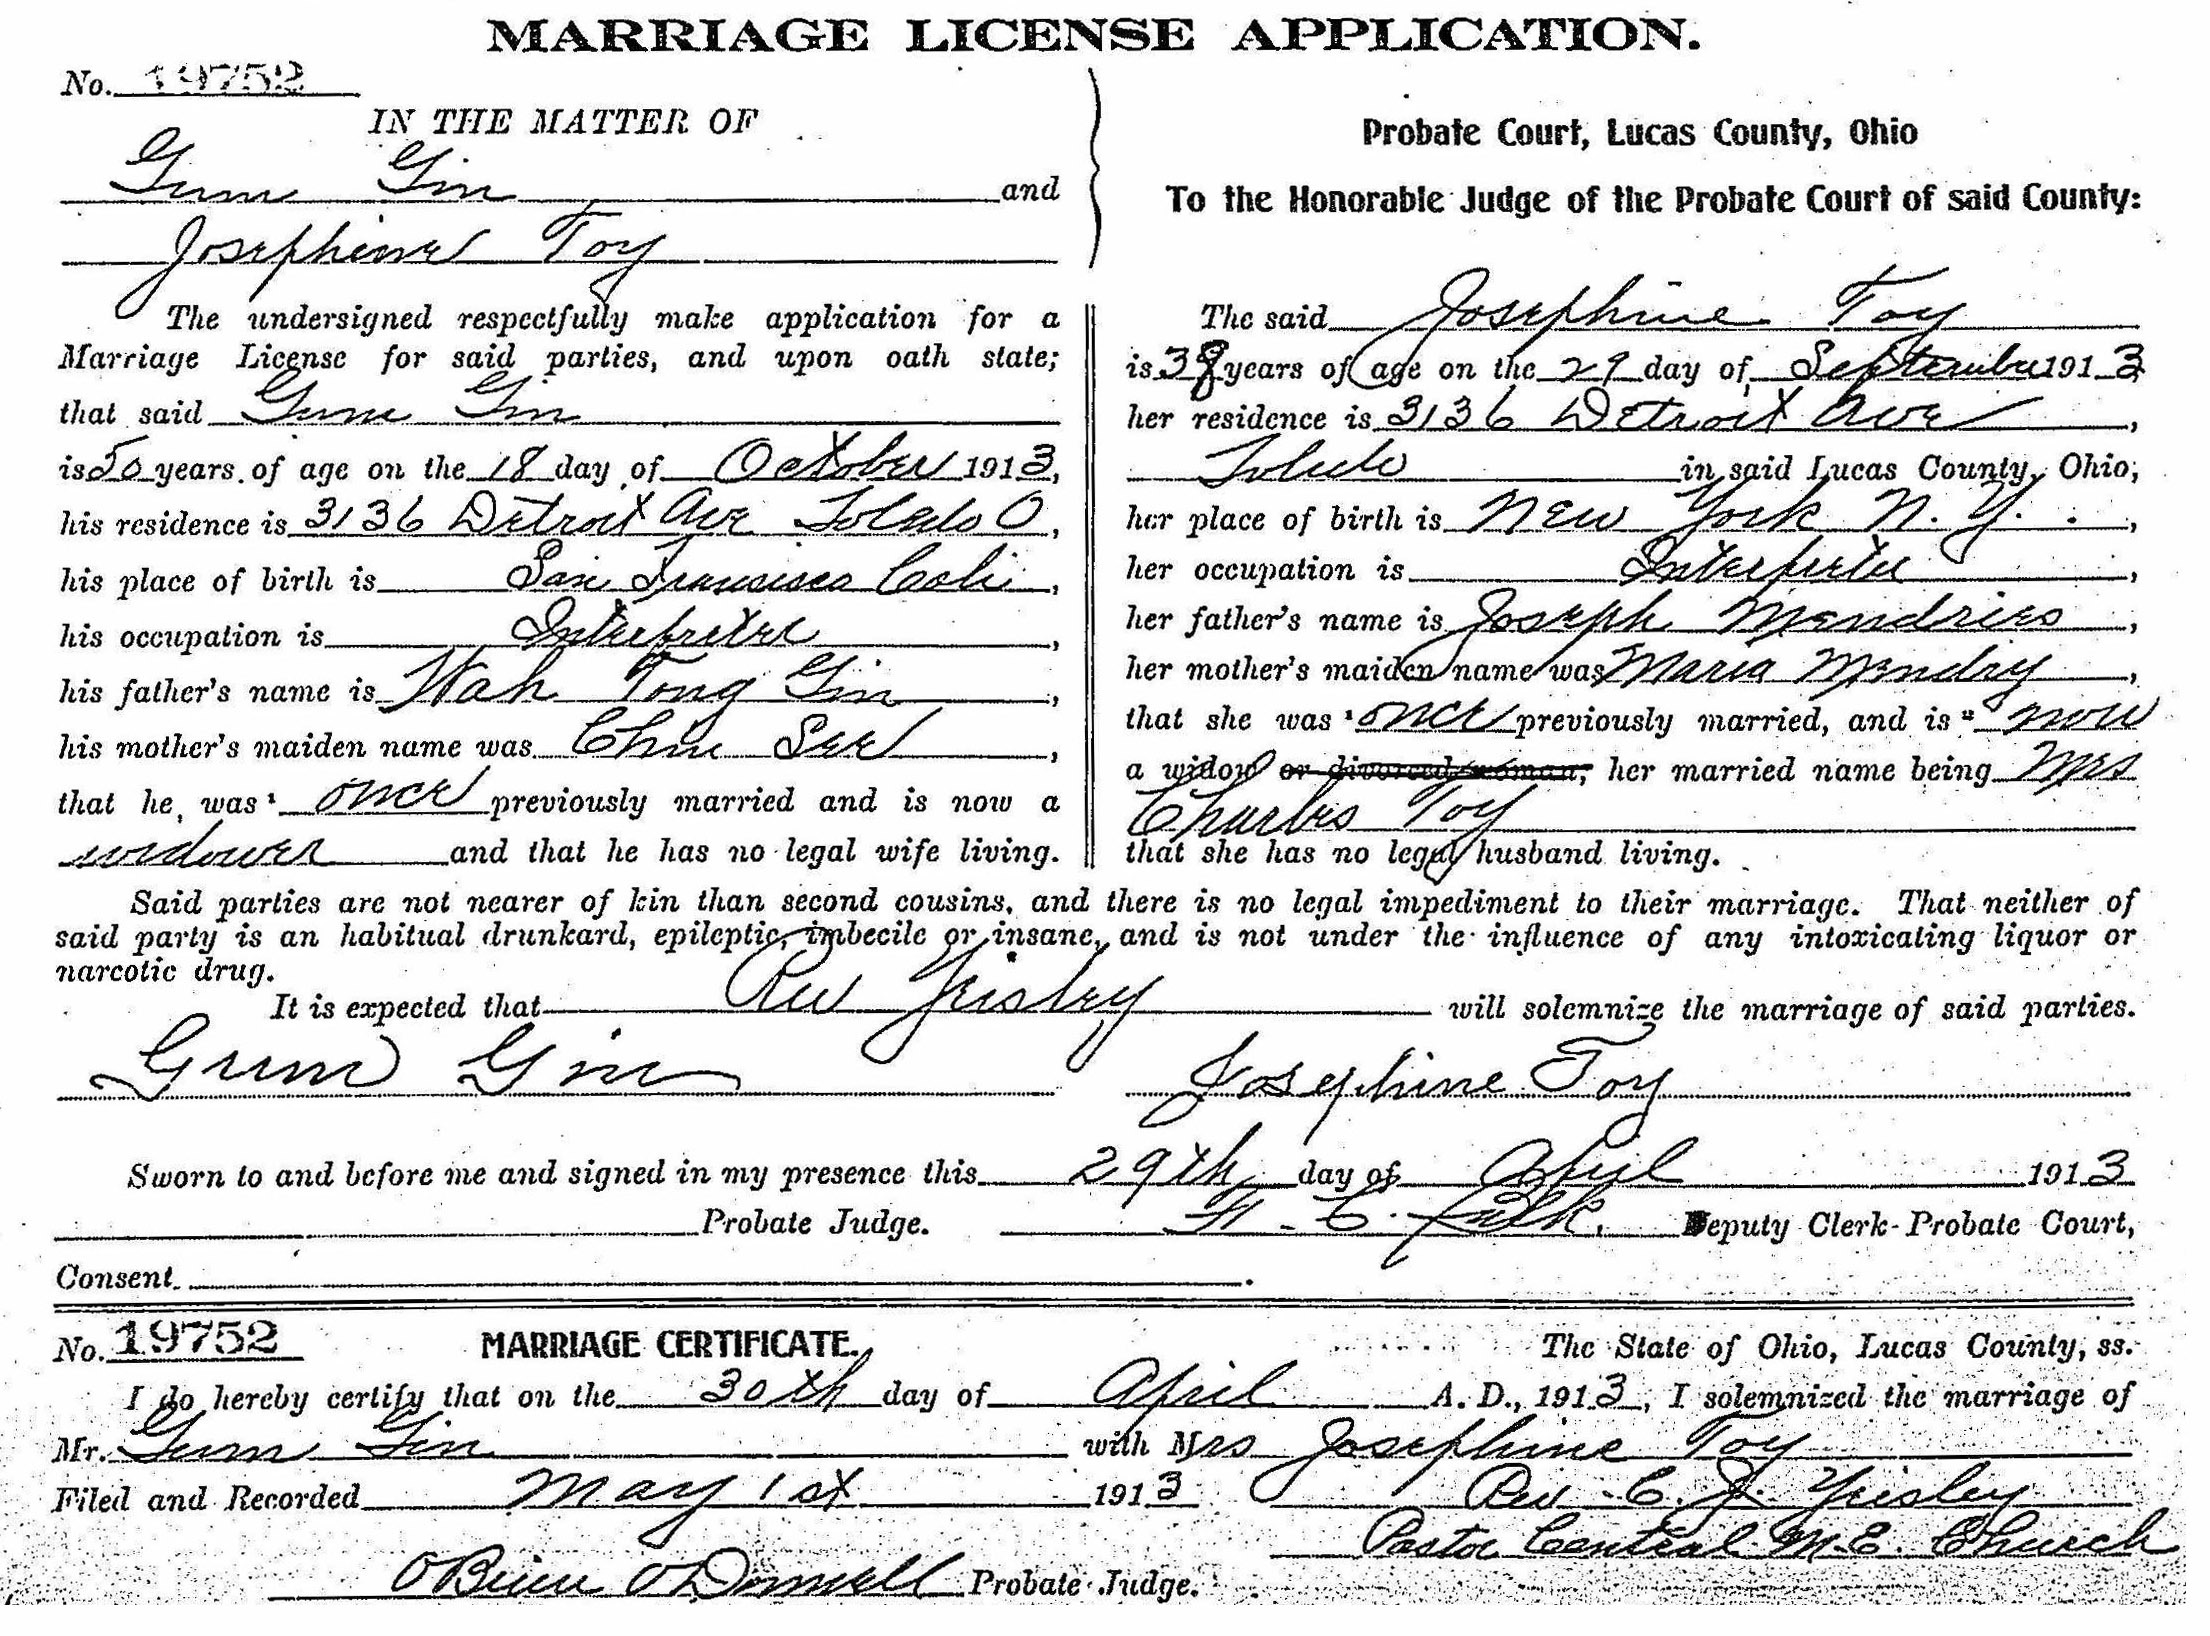 MARRIAGE LICENSE APPLICATION.
No. 19752
IN THE MATTER OF
Gum Gin and
Josephine Toy
Probate Court, Lucas County, Ohio
To the Honorable Judge of the Probate Court of said County:
The undersigned respectfully make application for a
Marriage License for said parties, and upon oath state;
that said Gum Gin
is 50 years of age on the 18 day of October 1913,
his residence is 3136 Detroit Ave Toledo O,
his place of birth is San Francisco Cali,
his occupation is Interpreter,
his father's name is Wah Tong Gin,
his mother's maiden name was Chin See,
that he was once previously married and is now a
widower and that he has no legal wife living.
The said Josephine Toy
is 38 years of age on the 29 day of September 1913
her residence is 3136 Detroit Ave,
Toledo in said Lucas County, Ohio,
her place of birth is New York N.Y.,
her occupation is Interpreter,
her father's name is Joseph Mendries,
her mother's maiden name was Maria Mendry,
that she was once previously married, and is now
a widow or divorced woman, her married name being Mrs
Charles Toy
that she has no legal husband living.
Said parties are not nearer of kin than second cousins, and there is no legal impediment to their marriage. That neither of
said party is an habitual drunkard, epileptic, imbecile or insane, and is not under the influence of any intoxicating liquor or
narcotic drug.
It is expected that Rev Yeisley will solemnize the marriage of said parties.
Gum Gin Josephine Toy
Sworn to and before me and signed in my presence this 29th day of April 1913
Probate Judge. C. Deputy Clerk-Probate Court,
Consent.
No. 19752 MARRIAGE CERTIFICATE. The State of Ohio, Lucas County, ss.
I do hereby certify that on the 30th day of April A. D., 1913, I solemnized the marriage of
Mr. Gum Gin with Mrs Josephine Toy
Filed and Recorded May 1st 1913 Rev. C. J. Yeisley
Pastor Central M.E. Church
O'Brien O'Donnell Probate Judge.